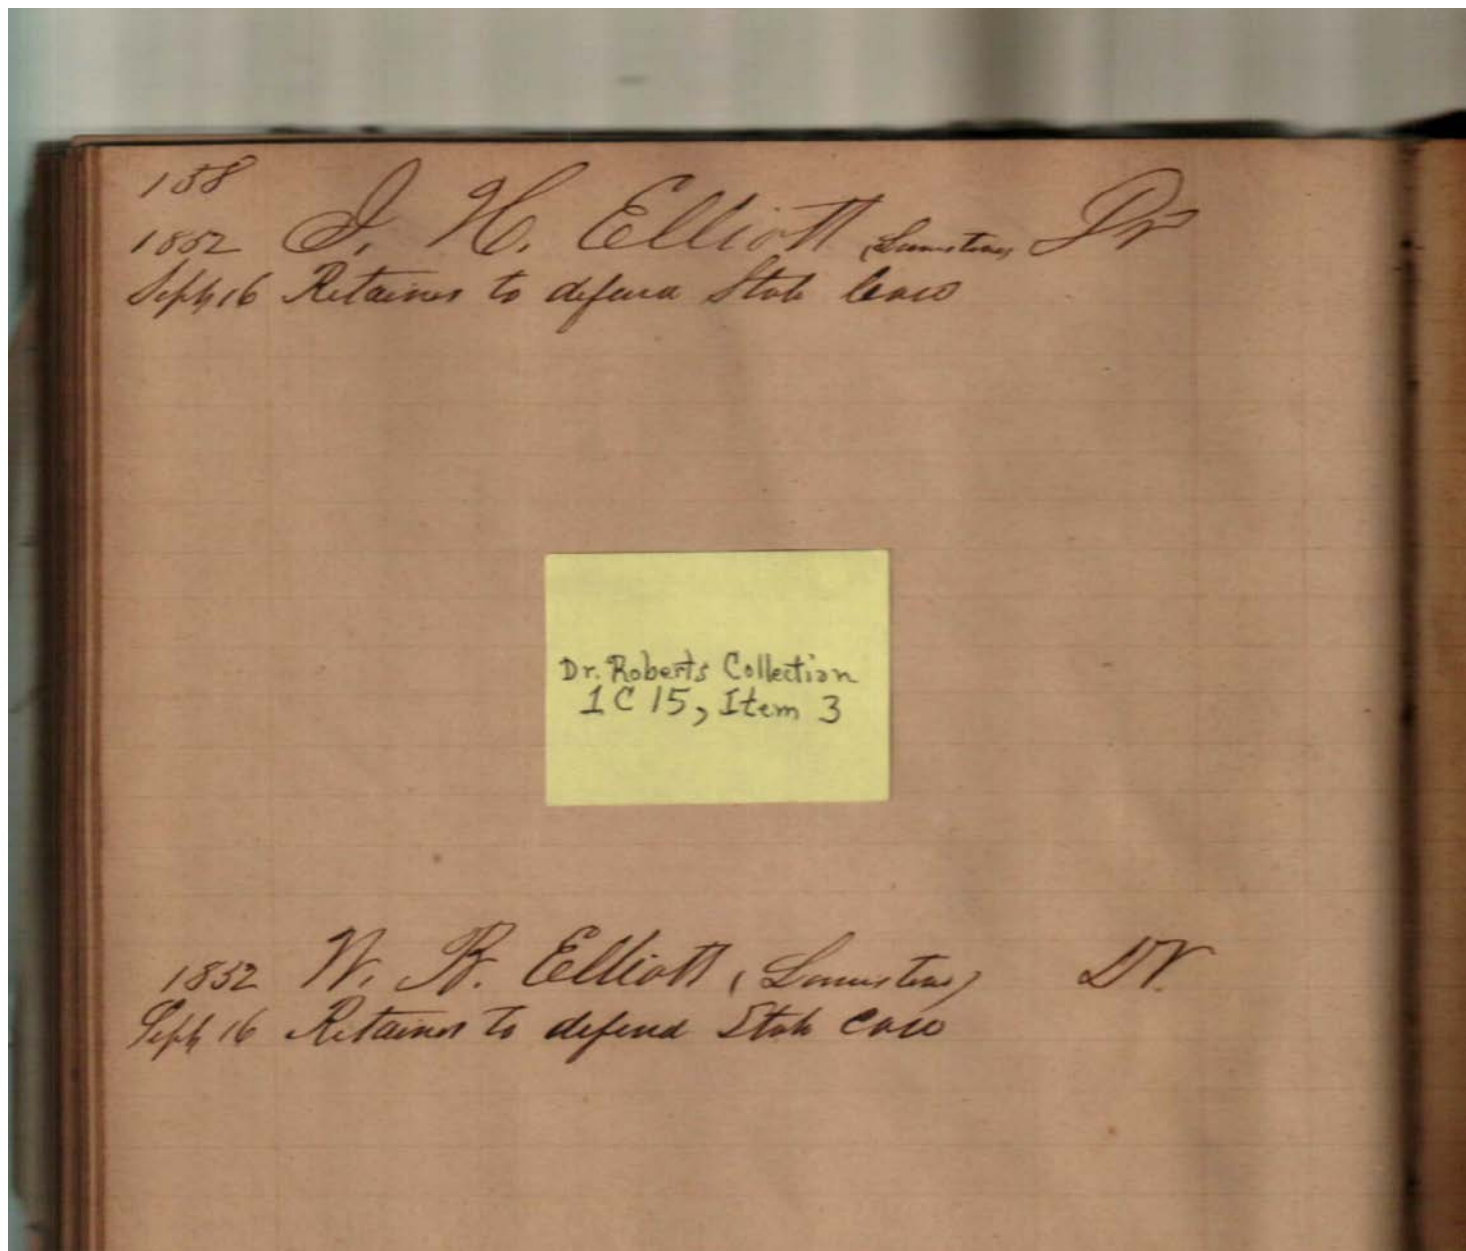 158
1852 J. H. Elliott Dr
Sept 16 Retainer to defend State Case
Dr. Roberts Collection
1 C 15, Item 3
1852 W. B. Elliott Dr.
Sept 16 Retainer to defend State case